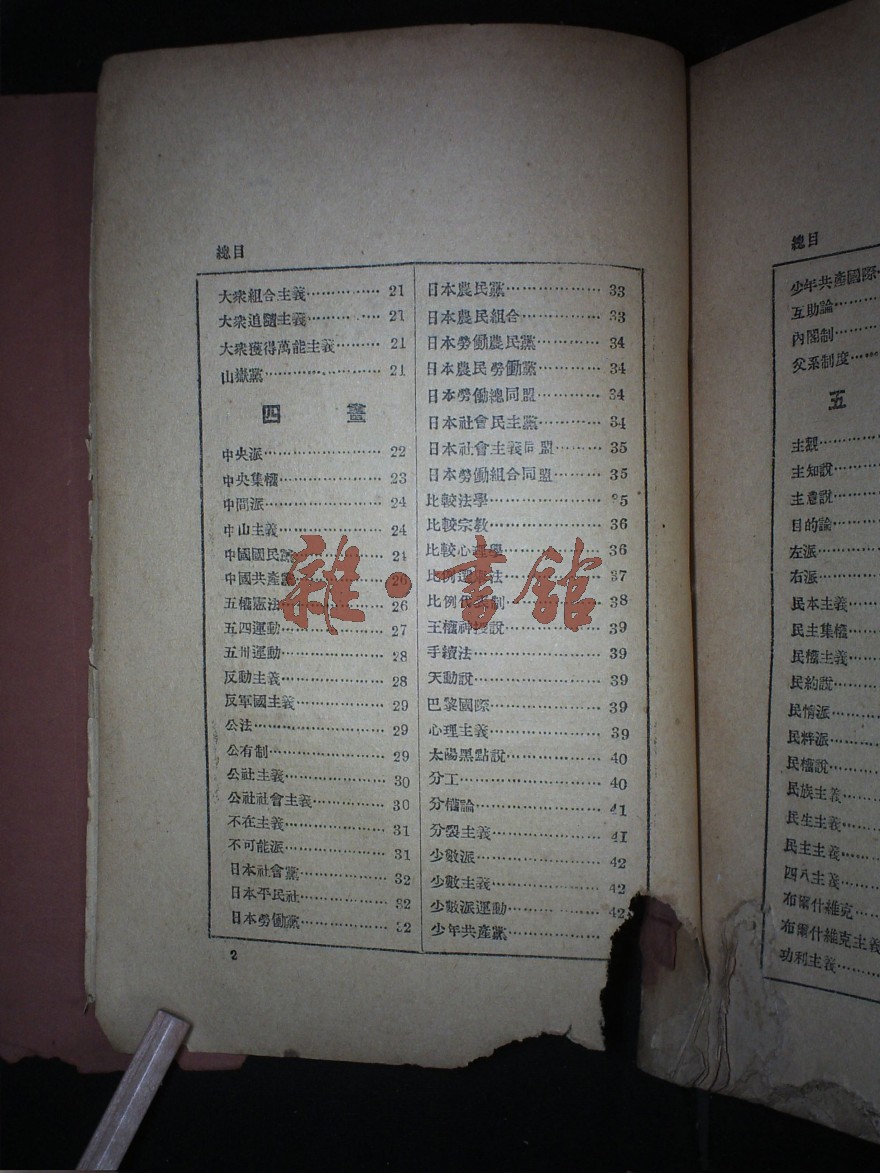 總目
大衆組合主義……………21
大衆追隨主義……………21
大衆獲得萬能主義………21
山嶽黨……………………21
四畫
中央派……………………22
中央集權…………………23
中間派……………………24
中山主義…………………24
中國國民黨………………24
中國共產黨………………26
五權憲法…………………26
五四運動…………………27
五卅運動…………………28
反動主義…………………28
反軍國主義………………29
公法………………………29
公有制……………………29
公社主義…………………30
公社社會主義……………30
不在主義…………………31
不可能派…………………31
日本社會黨………………32
日本平民社………………32
日本勞働黨………………32
日本農民黨………………33
日本農民組合……………33
日本勞働農民黨…………34
日本農民勞働黨…………34
日本勞働總同盟…………34
日本社會民主黨…………34
日本社會主義同盟………35
日本勞働組合同盟………35
比較法學…………………35
比較宗教…………………36
比較心理學………………36
比例選舉法………………37
比例代表制………………38
王權神授說………………39
手續法……………………39
天動說……………………39
巴黎國際…………………39
心理主義…………………39
太陽黑點說………………40
分工………………………40
分權論……………………41
分裂主義…………………41
少數派……………………42
少數主義…………………42
少數派運動………………42
少年共產黨………………
2
雜·書館
總目
少年共產國際…
互助論………
內閣制………
父系制度……
五
主觀…………
主知說………
主意說………
目的論………
左派…………
右派…………
民本主義……
民主集權……
民權主義……
民約說………
民情派………
民粹派………
民權說………
民族主義……
民生主義……
民主主義……
四八主義……
布爾什維克…
布爾什維克主義
功利主義……